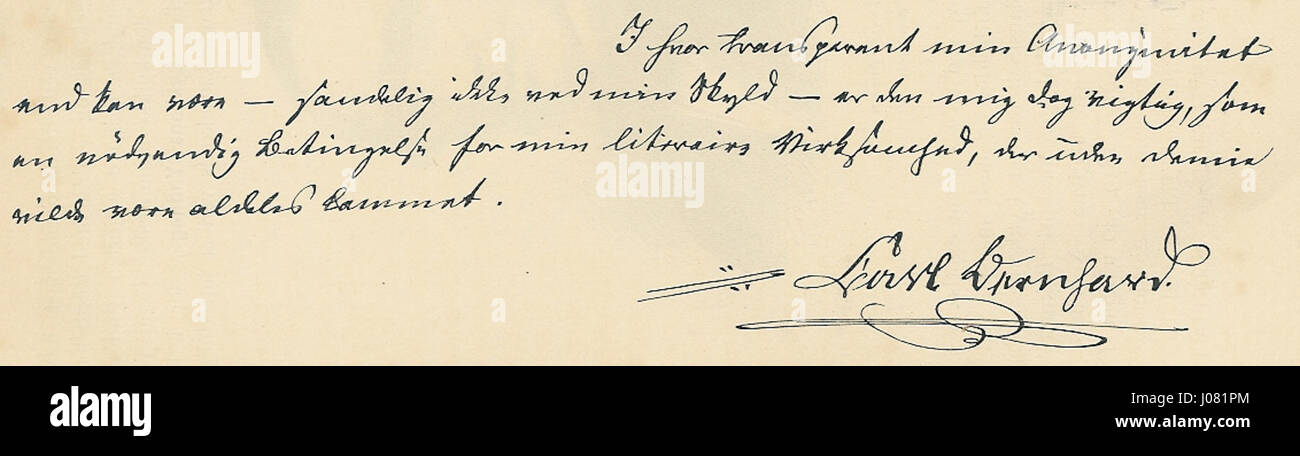 I hvor transparent min Anonymitet
end kan være — sandelig ikke ved min Skyld — er den mig dog vigtig, som
en nödvendig Betingelse for min literaire Virksomhed, der uden denne
vilde være aldeles lammet.
Carl Bernhard.
alamy
alamy
Image ID: J081PM
www.alamy.com